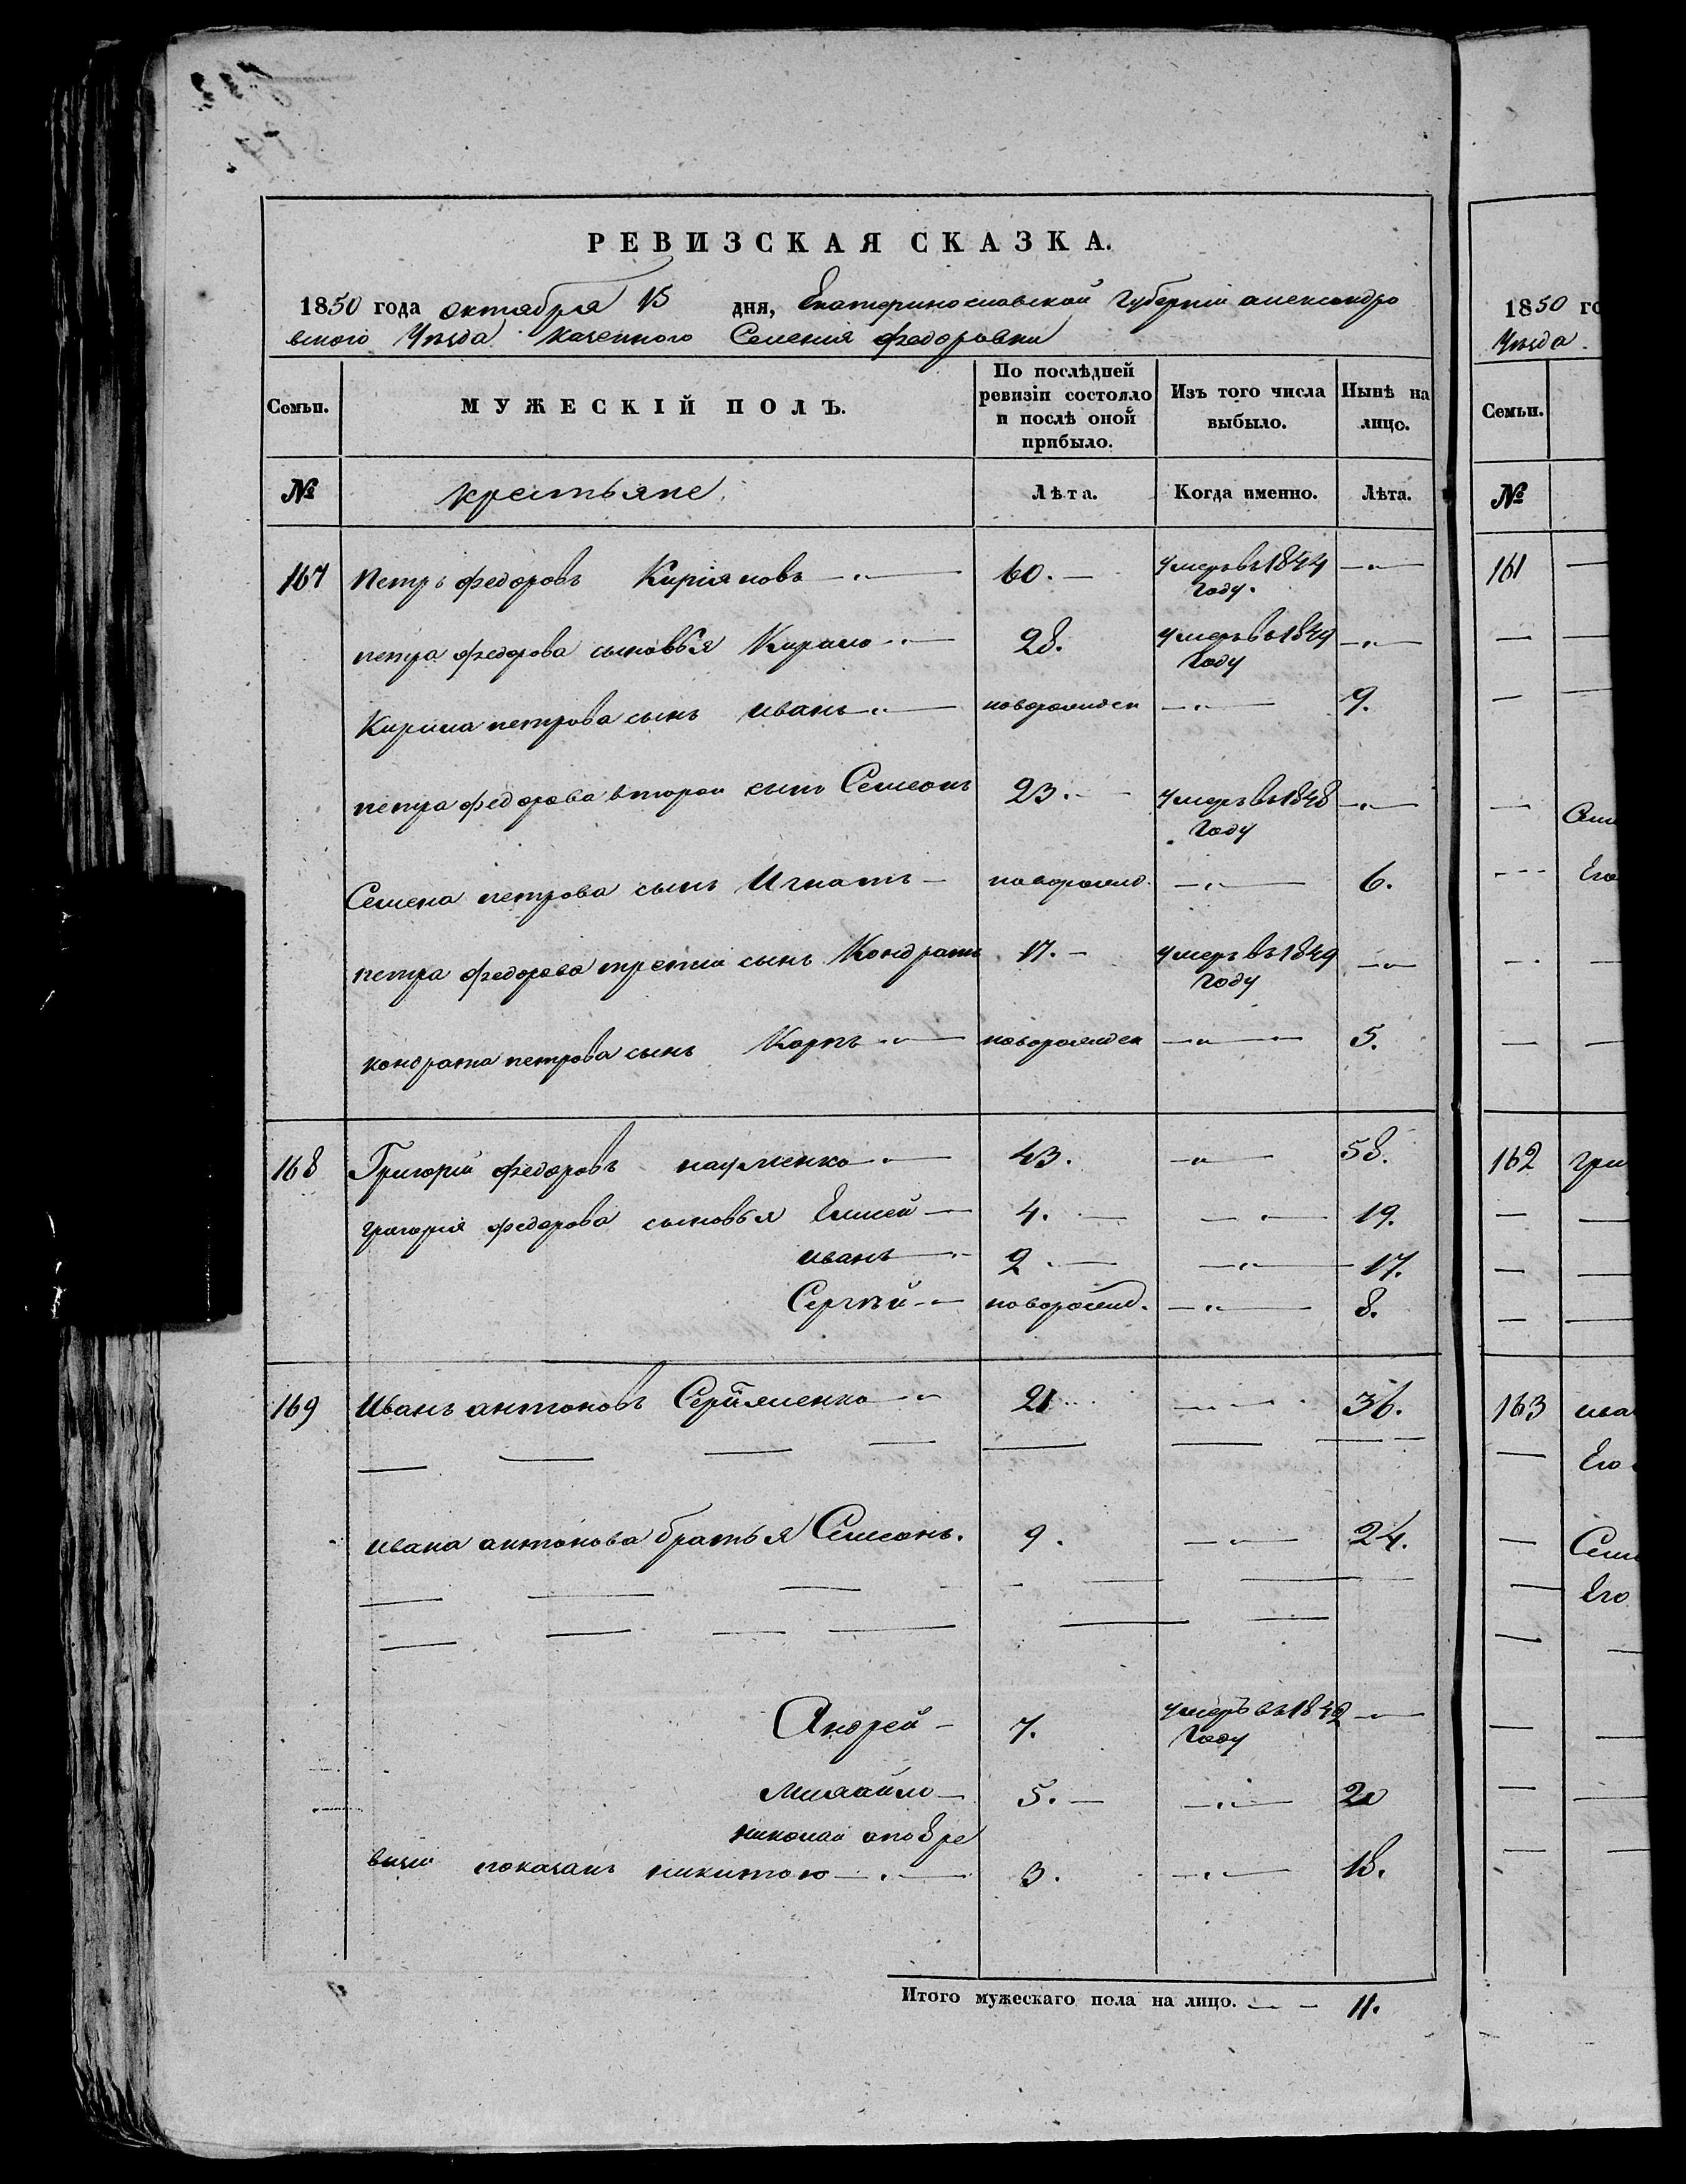 РЕВИЗСКАЯ СКАЗКА.
1850 года октября 15 дня, Екатеринославской Губерніи александро
вского Уезда казенного Селенія федоровки
Семьи. МУЖЕСКІЙ ПОЛЪ. По послѣдней ревизіи состояло и послѣ оной прибыло. Изъ того числа выбыло. Нынѣ на лицо.
№ крестьяне. Лѣта. Когда именно. Лѣта.
167 Петръ федоровъ Киріяновъ 60. умеръ въ 1844 году.
петра федорова сыновья Кирило 28. умеръ въ 1849 году
Кирила петрова сынъ иванъ новорожден 9.
петра федорова второй сынъ Семенъ 23. умеръ въ 1848 году
Семена петрова сынъ Игнатъ новорожд. 6.
петра федорова третій сынъ Кондратъ 17. умеръ въ 1849 году
кондрата петрова сынъ Карпъ новорожден 5.
168 Григорій федоровъ науменко 43. 58.
григорія федорова сыновья Елисей 4. 19.
иванъ 2 17.
Сергѣй новорожд. 8.
169 Иванъ антоновъ 21 36.
ивана антонова братья Семенъ. 9. 24.
Андрей 7. умеръ въ 1849 году
Михайло 5. 20
николай а по 8 ре
визіи показанъ никитою 3. 18.
Итого мужескаго пола на лицо. 11.
1850 го
Уезда.
Семьи.
№
161
Семе
Его
162 гри
163 ива
Его
Семе
Его